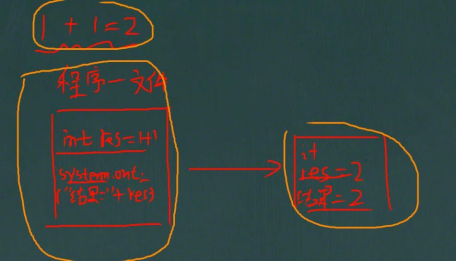 1 + 1 = 2
程序一文件
int res = 1+1
system.out.
("结果:"+res)
res = 2
结果 = 2